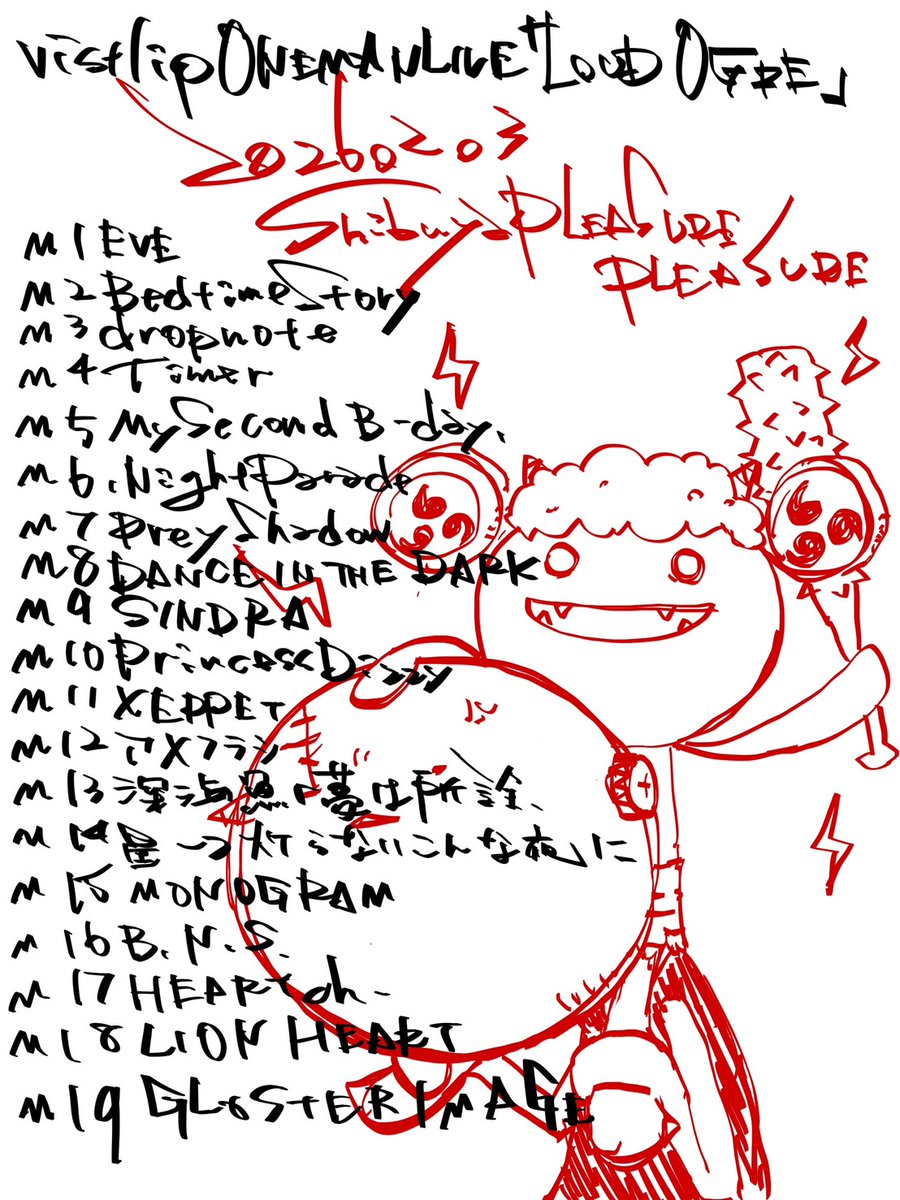 vistlip ONEMANLIVE「LOUD OGRE」
20260203
Shibuya PLEASURE
PLEASURE
M1 EVE
M2 BedtimeStory
M3 dropnote
M4 Timer
M5 My Second B-day.
M6 .Night Parade
M7 Prey Shadow
M8 DANCE IN THE DARK
M9 SINDRA
M10 Princess Dizzy
M11 XEPPET
M12 アメフラシ
M13 深海魚ノ夢ハ所詮、
M14 星一つ灯らないこんな夜に
M15 MONOGRAM
M16 B.N.S.
M17 HEART ch-
M18 LION HEART
M19 GLOSTER IMAGE